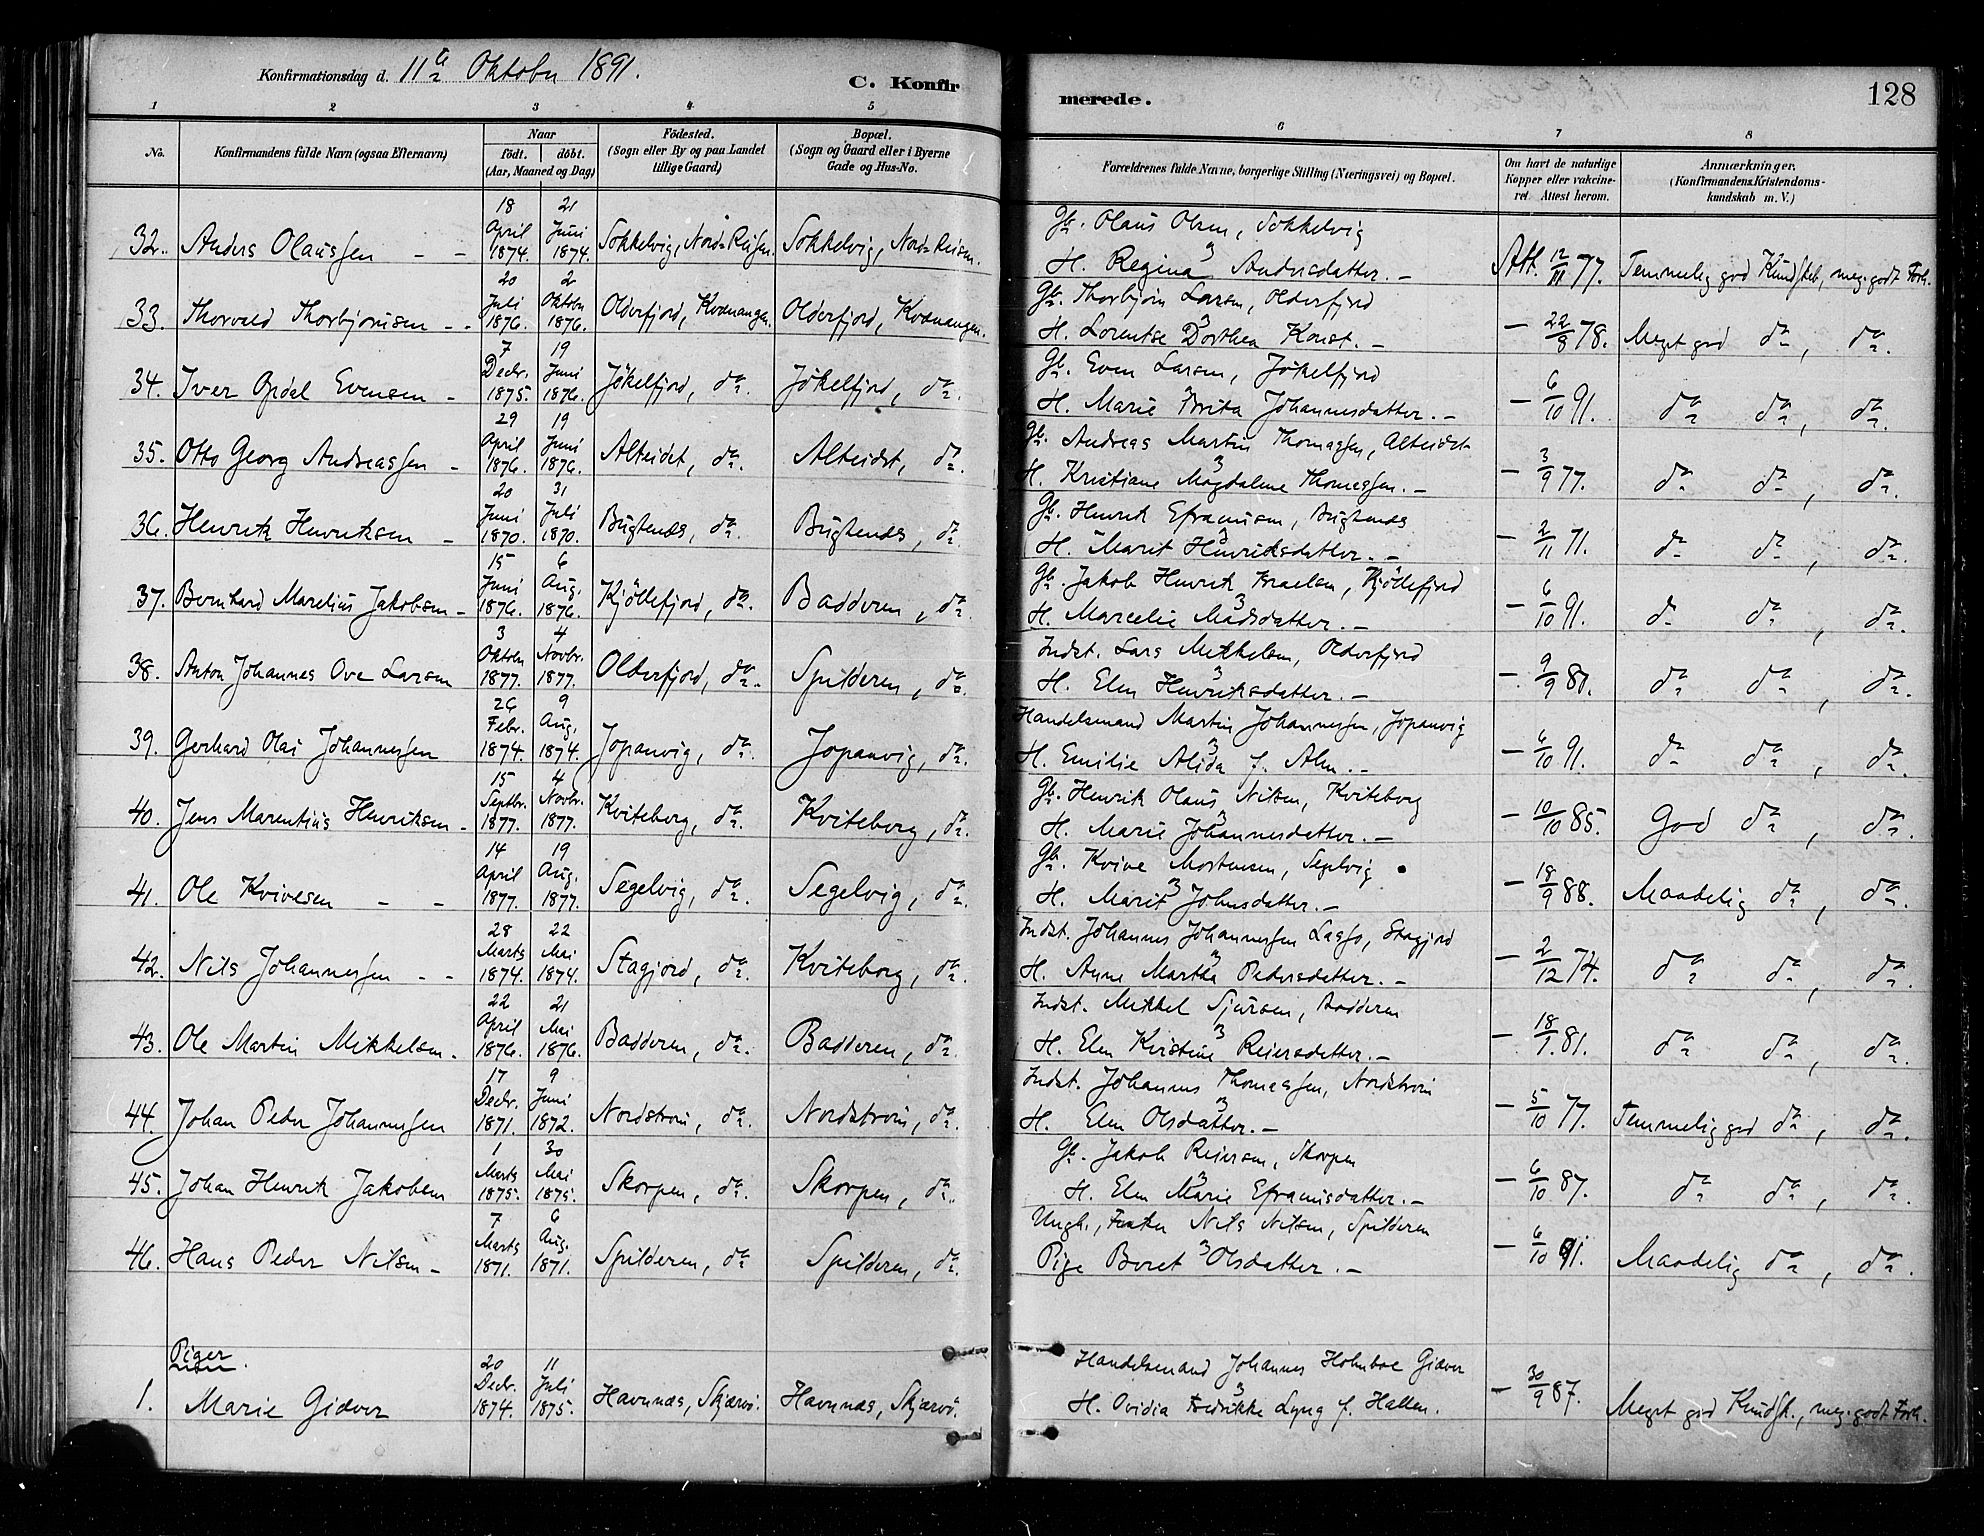 Konfirmationsdag d. 11te Oktober 1891.
C. Konfirmerede.
128
1 2 3 4 5 6 7 8
No.
Konfirmandens fulde Navn (ogsaa Efternavn)
Naar
født. døbt.
(Aar, Maaned og Dag)
Födested.
(Sogn eller By og paa Landet
tillige Gaard)
Bopæl.
(Sogn og Gaard eller i Byerne
Gade og Hus-No.
Forældrenes fulde Navne, borgerlige Stilling (Næringsvei) og Bopæl.
Om havt de naturlige
Kopper eller vakcine-
ret. Attest herom.
Anmærkninger.
(Konfirmandens Kristendoms-
kundskab m. V.)
32. Anders Olaussen - - 18 April 1874. 21 Juni 1874. Sokkelvig, Nord-Reisen. Sokkelvig, Nord-Reisen. Gb. Olaus Olsen, Sokkelvig
H. Regina Andersdatter. - Att. 12/11 77. Temmelig god Kundskab, meg. godt Forh.
33. Thorvald Thorbjørnsen - - 20 Juli 1876. 2 Oktober 1876. Olderfjord, Kvænangen. Olderfjord, Kvænangen. Gb. Thorbjørn Larsen, Olderfjord
H. Lorentse Dorthea Konst. - - 22/8 78. Meget god do, do.
34. Iver Opdal Evensen - 7 Decbr. 1875. 19 Juni 1876. Jökelfjord, do. Jökelfjord, do. Gb. Even Larsen, Jökelfjord
H. Marie Brita Johannesdatter. - - 6/10 91. do do, do.
35. Otto Georg Andreassen - 29 April 1876. 19 Juni 1876. Alteidet, do. Alteidet, do. Gb. Andreas Martin Thomassen, Alteidet
H. Kristiane Magdalene Thomassen. - - 3/9 77. do do, do.
36. Henrik Henriksen - 20 Juni 1870. 31 Juli 1870. Bugtenæs, do. Bugtenæs, do. Gb. Henrik Efraimsen, Bugtenæs
H. Marit Henriksdatter. - - 2/11 71. do do, do.
37. Bernhard Marelius Jakobsen - 15 Juni 1876. 6 Aug. 1876. Kjöllefjord, do. Badderen, do. Gb. Jakob Henrik Israelsen, Kjöllefjord
H. Marcelie Madsdatter. - - 6/10 91. do do, do.
38. Anton Johannes Ove Larsen 3 Oktober 1877. 4 Novbr. 1877. Olderfjord, do. Spilderen, do. Indst. Lars Mikkelsen, Olderfjord
H. Elen Henriksdatter. - - 9/9 80. do do, do.
39. Gerhard Olai Johannessen 26 Febr. 1874. 9 Aug. 1874. Jopanvig, do. Jopanvig, do. Handelsmand Martin Johannessen, Jopanvig
H. Emilie Alida f. Alm. - - 6/10 91. do do, do.
40. Jens Marentius Henriksen - 15 Septbr. 1877. 4 Novbr. 1877. Kviteborg, do. Kviteborg, do. Gb. Henrik Olaus Nilsen, Kviteborg
H. Marie Johannesdatter. - - 10/10 85. God do, do.
41. Ole Kvivesen - - 14 April 1877. 19 Aug. 1877. Segelvig, do. Segelvig, do. Gb. Kvive Mortensen, Segelvig
H. Marit Johnsdatter. - - 18/9 88. Maadelig do, do.
42. Nils Johannessen - - 28 Marts 1874. 22 Mai 1874. Stagjord, do. Kviteborg, do. Indst. Johannes Johannessen Lasso, Stagjord
H. Anne Martha Pedersdatter. - - 2/12 74. do do, do.
43. Ole Martin Mikkelsen. 22 April 1876. 21 Mai 1876. Badderen, do. Badderen, do. Indst. Mikkel Sjursen, Badderen
H. Elen Kirstine Reiersdatter. - - 18/1 81. do do, do.
44. Johan Peder Johannessen 17 Decbr. 1871. 9 Juni 1872. Nordstrøm, do. Nordstrøm, do. Indst. Johannes Thomassen, Nordstrøm
H. Elen Olsdatter. - - 5/10 77. Temmelig god do, do.
45. Johan Henrik Jakobsen 1 Marts 1875. 30 Mai 1875. Skorpen, do. Skorpen, do. Gb. Jakob Reiersen, Skorpen
H. Elen Marie Efraimsdatter. - - 6/10 87. do do, do.
46. Hans Peder Nilsen - 7 Marts 1871. 6 Aug. 1871. Spilderen, do Spilderen, do. Ungk., Nils Nilsen, Spilderen
Pige Beret Olsdatter. - - 6/10 91. Maadelig do, do.
Piger.
1. Marie Giæver 20 Decbr. 1874. 11 Juli 1875. Havnnæs, Skjærvö. Havnnæs, Skjærvö. Handelsmand Johannes Holmboe Giæver
H. Ovidia Fredrikke Lyng f. Hallen. - 30/9 87. Meget god Kundsk., meg. godt Forh.